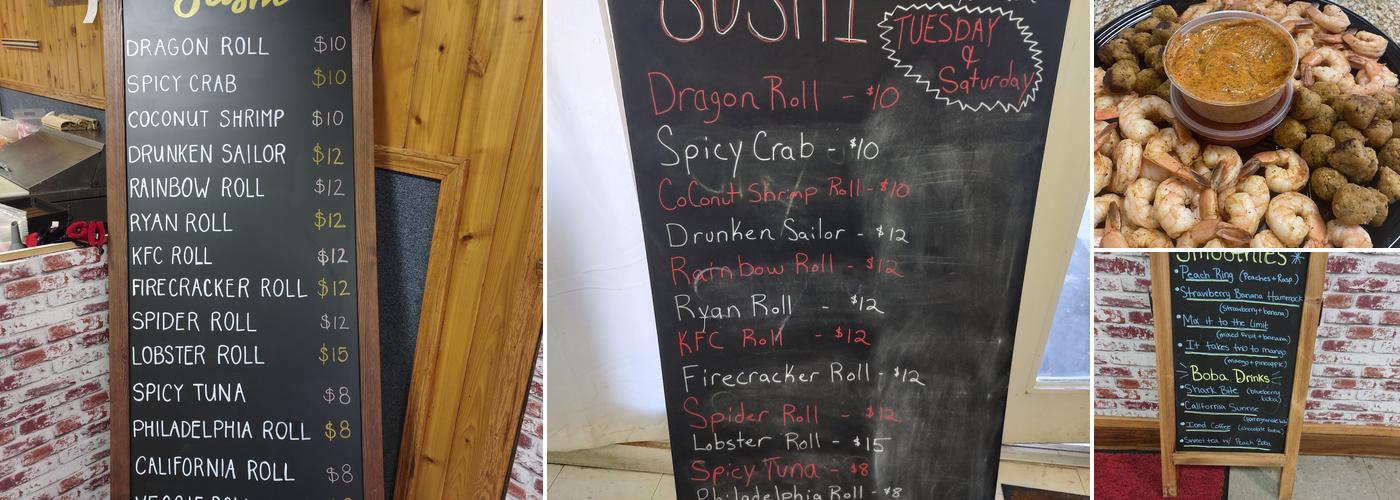 Sushi
DRAGON ROLL $10
SPICY CRAB $10
COCONUT SHRIMP $10
DRUNKEN SAILOR $12
RAINBOW ROLL $12
RYAN ROLL $12
KFC ROLL $12
FIRECRACKER ROLL $12
SPIDER ROLL $12
LOBSTER ROLL $15
SPICY TUNA $8
PHILADELPHIA ROLL $8
CALIFORNIA ROLL $8
VEGGIE ROLL
SUSHI
TUESDAY
&
Saturday
Dragon Roll - $10
Spicy Crab - $10
CoConut Shrimp Roll - $10
Drunken Sailor - $12
Rainbow Roll - $12
Ryan Roll - $12
KFC Roll - $12
Firecracker Roll - $12
Spider Roll - $12
Lobster Roll - $15
Spicy Tuna - $8
Philadelphia Roll - $8
Smoothies
• Peach Ring (Peaches + Rasp.)
• Strawberry Banana Hammock
(Strawberry + banana)
• Mix it to the Limit
(mixed fruit + banana)
• It takes two to mango
(mango + pineapple)
Boba Drinks
• Shark Bite (blueberry
boba)
• California Sunrise
• Iced Coffee (chocolate boba)
• Sweet tea w/ Peach Boba